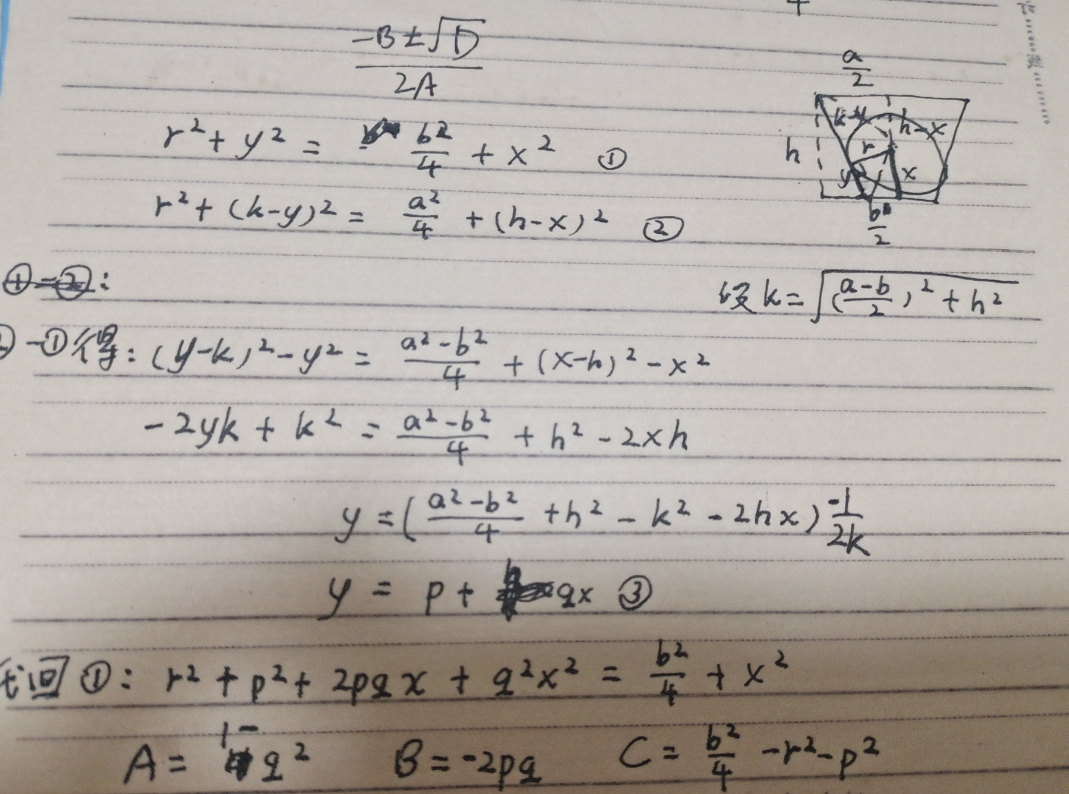 -B±√D / 2A
a/2
k-y h-x
r
h
y x
b/2
r²+y² = b²/4 + x² ①
r²+(k-y)² = a²/4 + (h-x)² ②
①-②:
设k=√((a-b/2)²+h²)
②-①得: (y-k)²-y² = a²-b²/4 + (x-h)²-x²
-2yk + k² = a²-b²/4 + h² - 2xh
y = (a²-b²/4 + h² - k² - 2hx) -1/2k
y = p + qx ③
代回①: r²+p²+2pqx+q²x² = b²/4 + x²
A= 1-q² B=-2pq C= b²/4 -r²-p²